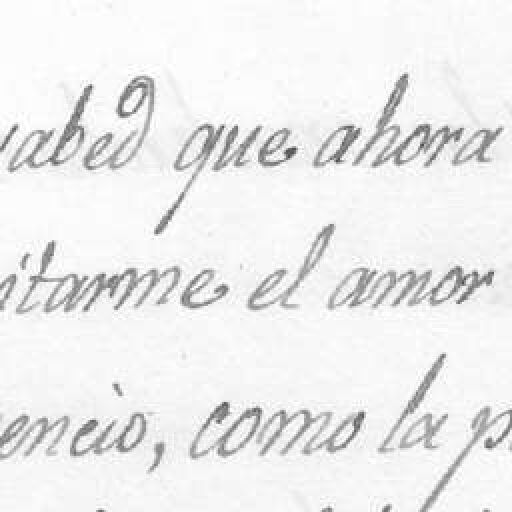 abed que ahora
itarme el amor
encio, como la p